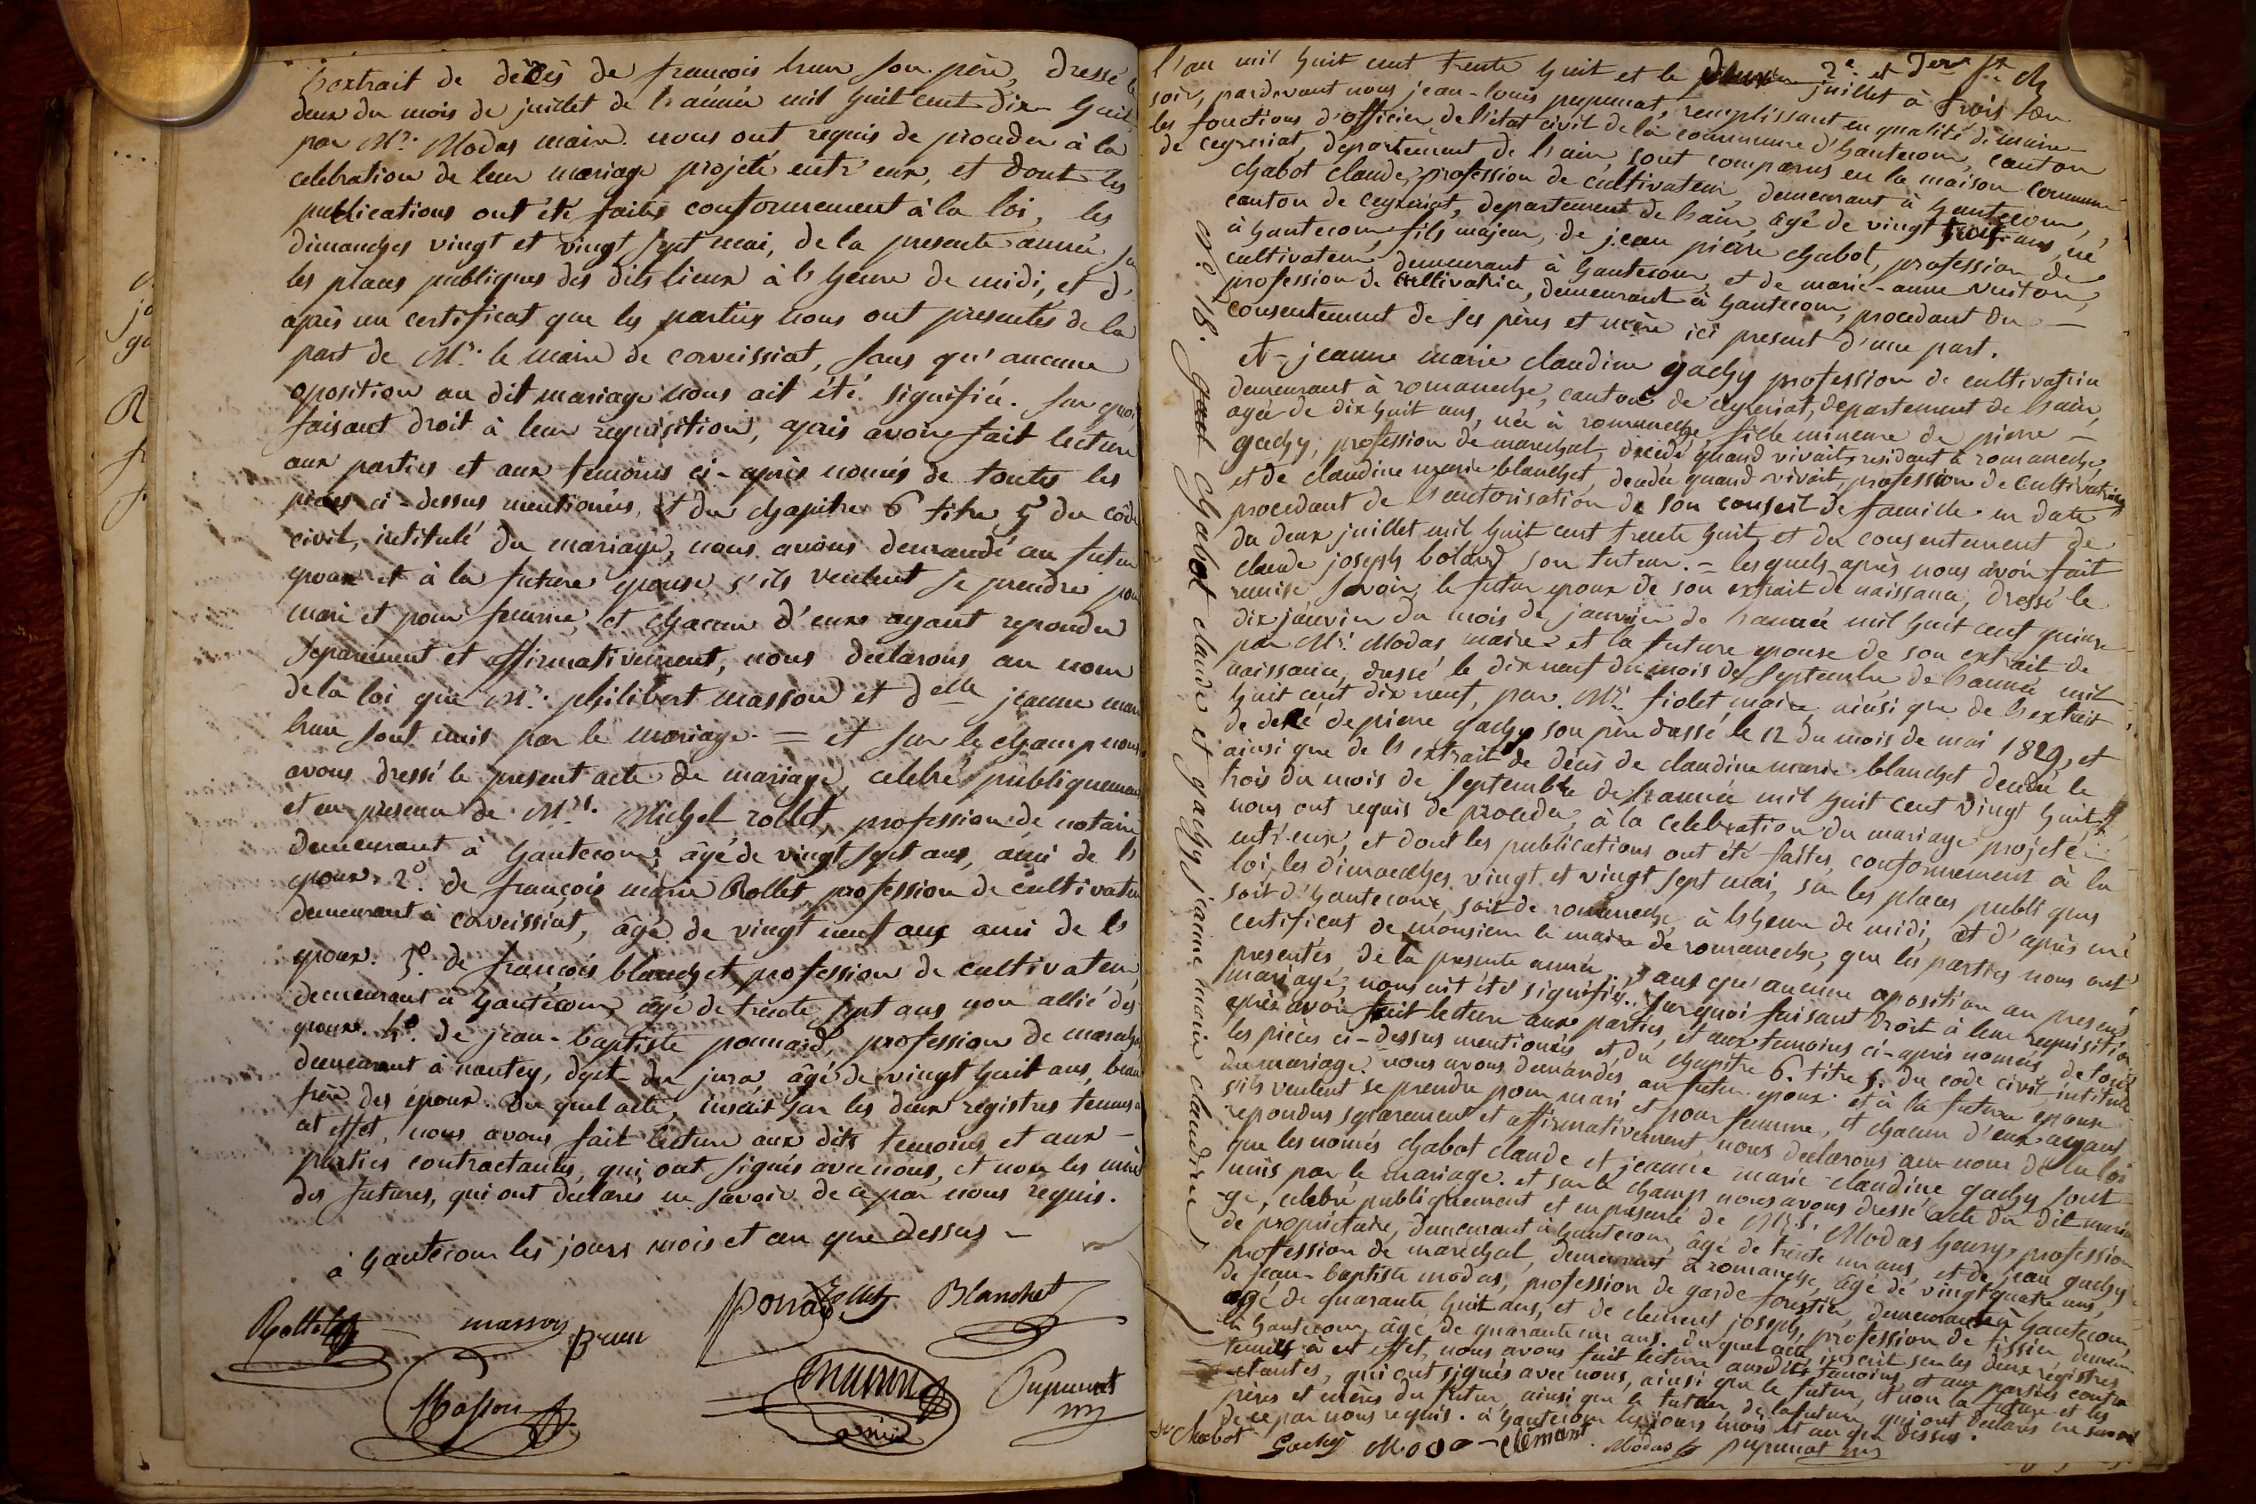 l'extrait de décès de françois brun son père, dressé le
deux du mois de juillet de l'année mil huit cent dix huit
par Mr. Modas maire. nous ont requis de proceder à la
celebration de leur mariage projeté entr'eux, et dont les
publications ont été faites conformement à la loi, les
dimanches vingt et vingt sept mai, de la presente année sur
les places publiques des dits lieux à l'heure de midi, et d'
après un certificat que les parties nous ont presentés de la
part de Mr. le maire de corveissiat, sans qu'aucune
oposition au dit mariage nous ait été signifiée. sur quoi
faisant droit à leur requisition, après avoir fait lecture
aux parties et aux temoins ci-après només de toutes les
pièces ci-dessus mentionées, et du chapitre 6 titre 5 du côde
civil, intitulé du mariage, nous avons demandé au futur
époux et à la future épouse s'ils veulent se prendre pour
mari et pour femme, et chacun d'eux ayant repondu
separement et affirmativement, nous declarons au nom
de la loi que Mr. philibert masson et delle jeanne marie
brun sont unis par le mariage. = et sur le champ nous
avons dressé le present acte de mariage, celebré publiquement
et en presence de Mrs. Michel rollet, profession de notaire
demeurant à hautecour, âgé de vingt sept ans, ami de l'
époux. 2° de françois marie Rollet profession de cultivateur
demeurant à corveissiat, âgé de vingt neuf ans ami de l'
époux. 3° de françois blanchet profession de cultivateur,
demeurant à hautecour, âgé de trente sept ans non allié des
époux. 4° de jean-baptiste ponnard, profession de marechal
demeurant à nantey, dept du jura, âgé de vingt huit ans, beau
frère des époux. Du quel acte, inscrit sur les deux registres tenus à
cet effet, nous avons fait lecture aux dits temoins et aux
parties contractantes, qui ont signés avec nous, et non les mères
des futures, qui ont declarés ne savoir de ce par nous requis.
à hautecour les jours mois et an que dessus
Rollet masson Brun Ponard Rollet Blanchet
Masson Pupunat
n° 18. chabot claude et gachy jeanne marie claudine
l'an mil huit cent trente huit et le 2e et
soir, pardevant nous jean-louis pupunat, remplissant en qualité de maire
les fonctions d'officier de l'état civil de la commune d'hautecour, canton
de ceyzeriat, departement de l'ain, sont comparus en la maison commune
chabot claude, profession de cultivateur, demeurant à hautecour,
canton de ceyzeriat, departement de l'ain, âgé de vingt trois ans, né
à hautecour, fils majeur, de jean pierre chabot, profession de
cultivateur demeurant à hautecour, et de marie-anne vuiton,
profession de cultivatrice, demeurant à hautecour, procedant du
consentement de ses pères et mère ici present d'une part.
et - jeanne marie claudine gachy profession de cultivatrice
demeurant à romaneche, canton de ceyzeriat, departement de l'ain,
agée de dix huit ans, née à romaneche, fille mineure de pierre
gachy, profession de marechal, decedé quand vivait, residant à romaneche
et de claudine marie blanchet, decedée quand vivait, profession de cultivatrice
procedant de l'autorisation de son conseil de famille en date
du deux juillet mil huit cent trente huit et du consentement de
claude joseph boland son tuteur. = lesquels après nous avoir fait
remise savoir le futur epoux de son extrait de naissance, dressé le
dix janvier du mois de janvier de l'année mil huit cent quinze
par Mr. Modas maire et la future épouse de son extrait de
naissance, dressé le dix neuf du mois de septembre de l'année mil
huit cent dix neuf, par Mr. fiolet, maire, ainsi que de l'extrait
de decè de pierre gachy son père dressé le 12 du mois de mai 1829, et
ainsi que de l'extrait de decès de claudine marie blanchet decedée le
trois du mois de septembre de l'année mil huit cent vingt huit
nous ont requis de proceder, à la celebration du mariage projeté
entr'eux, et dont les publications ont été faites, conformement à la
loi, les dimanches vingt et vingt sept mai, sur les places publiques
soit d'hautecour, soit de romaneche, à l'heure de midi, et d'après un
certificat de monsieur le maire de romaneche, que les parties nous ont
presentés de la presente année, sans qu'aucune oposition au present
mariage, nous ait été signifiée. sur quoi faisant droit à leur requisition
après avoir fait lecture aux parties, et aux temoins ci-après només, de toutes
les pièces ci-dessus mentionées, et du chapitre 6. titre 5. du code civil, intitulé
du mariage. nous avons demandés au futur epoux. et à la future epouse
s'ils veulent se prendre pour mari et pour femme, et chacun d'eux ayant
repondus separement et affirmativement, nous declarons au nom de la loi
que les només chabot claude et jeanne marie claudine gachy sont
unis par le mariage. et sur le champ nous avons dressé acte du dit maria
-ge, celebré publiquement et en presence de Mrs. Modas henry, profession
de proprietaire, demeurant à hautecour, âgé de trente un ans, et de jean gachy
profession de marechal, demeurant à romaneche, âgé de vingt quatre ans,
de jean-baptiste modas, profession de garde forestier, demeurant à hautecour,
agé de quarante huit ans, et de clement joseph, profession de tissier, demeurant
à hautecour, âgé de quarante un ans. du quel acte, inscrit sur les deux registres
tenus à cet effet, nous avons fait lecture auxdits temoins, et aux parties contra
-ctantes, qui ont signés avec nous, ainsi que le futur, et non la future et les
pères et mères du futur, ainsi que le tuteur de la future, qui ont declarés ne savoir
de ce par nous requis. à hautecour les jours mois et an que dessus.
Chabot Gachy Modas Clémant Modas pupunat